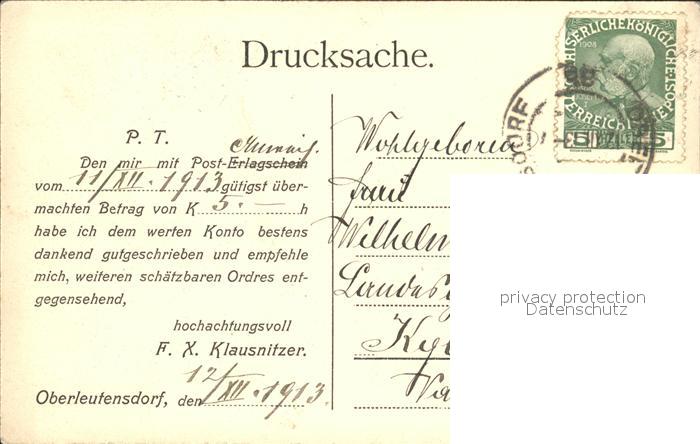 Drucksache.
P. T.
Anweis.
Den mir mit Post-Erlagschein
vom 11/XII. 1913 gütigst über-
machten Betrag von K 5.— h
habe ich dem werten Konto bestens
dankend gutgeschrieben und empfehle
mich, weiteren schätzbaren Ordres ent-
gegensehend,
hochachtungsvoll
F. X. Klausnitzer.
Oberleutensdorf, den 12/XII. 1913.
Wohlgeboren
Frau
Wilhelm
Landes
1908
5 5
SDORF
privacy protection
Datenschutz